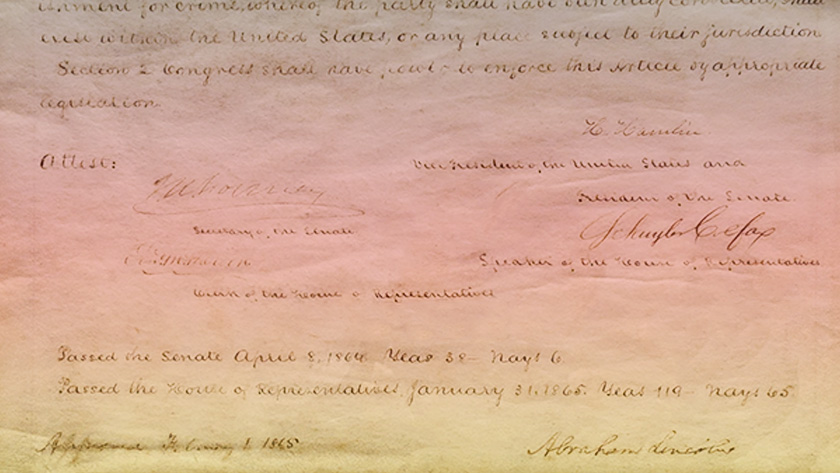 ishment for crime, whereof the party shall have been duly convicted, shall
exist within the United States, or any place subject to their jurisdiction
Section 2 Congress shall have power to enforce this Article by appropriate
legislation
H. Hamlin.
Attest:
Vice President of the United States and
President of the Senate.
Secretary of the Senate
Schuyler Colfax
Speaker of the House of Representatives
Clerk of the House of Representatives
Passed the Senate April 8, 1864 Yeas 38 - Nays 6.
Passed the House of Representatives, January 31, 1865. Yeas 119 - Nays 65
Approved February 1, 1865
Abraham Lincoln